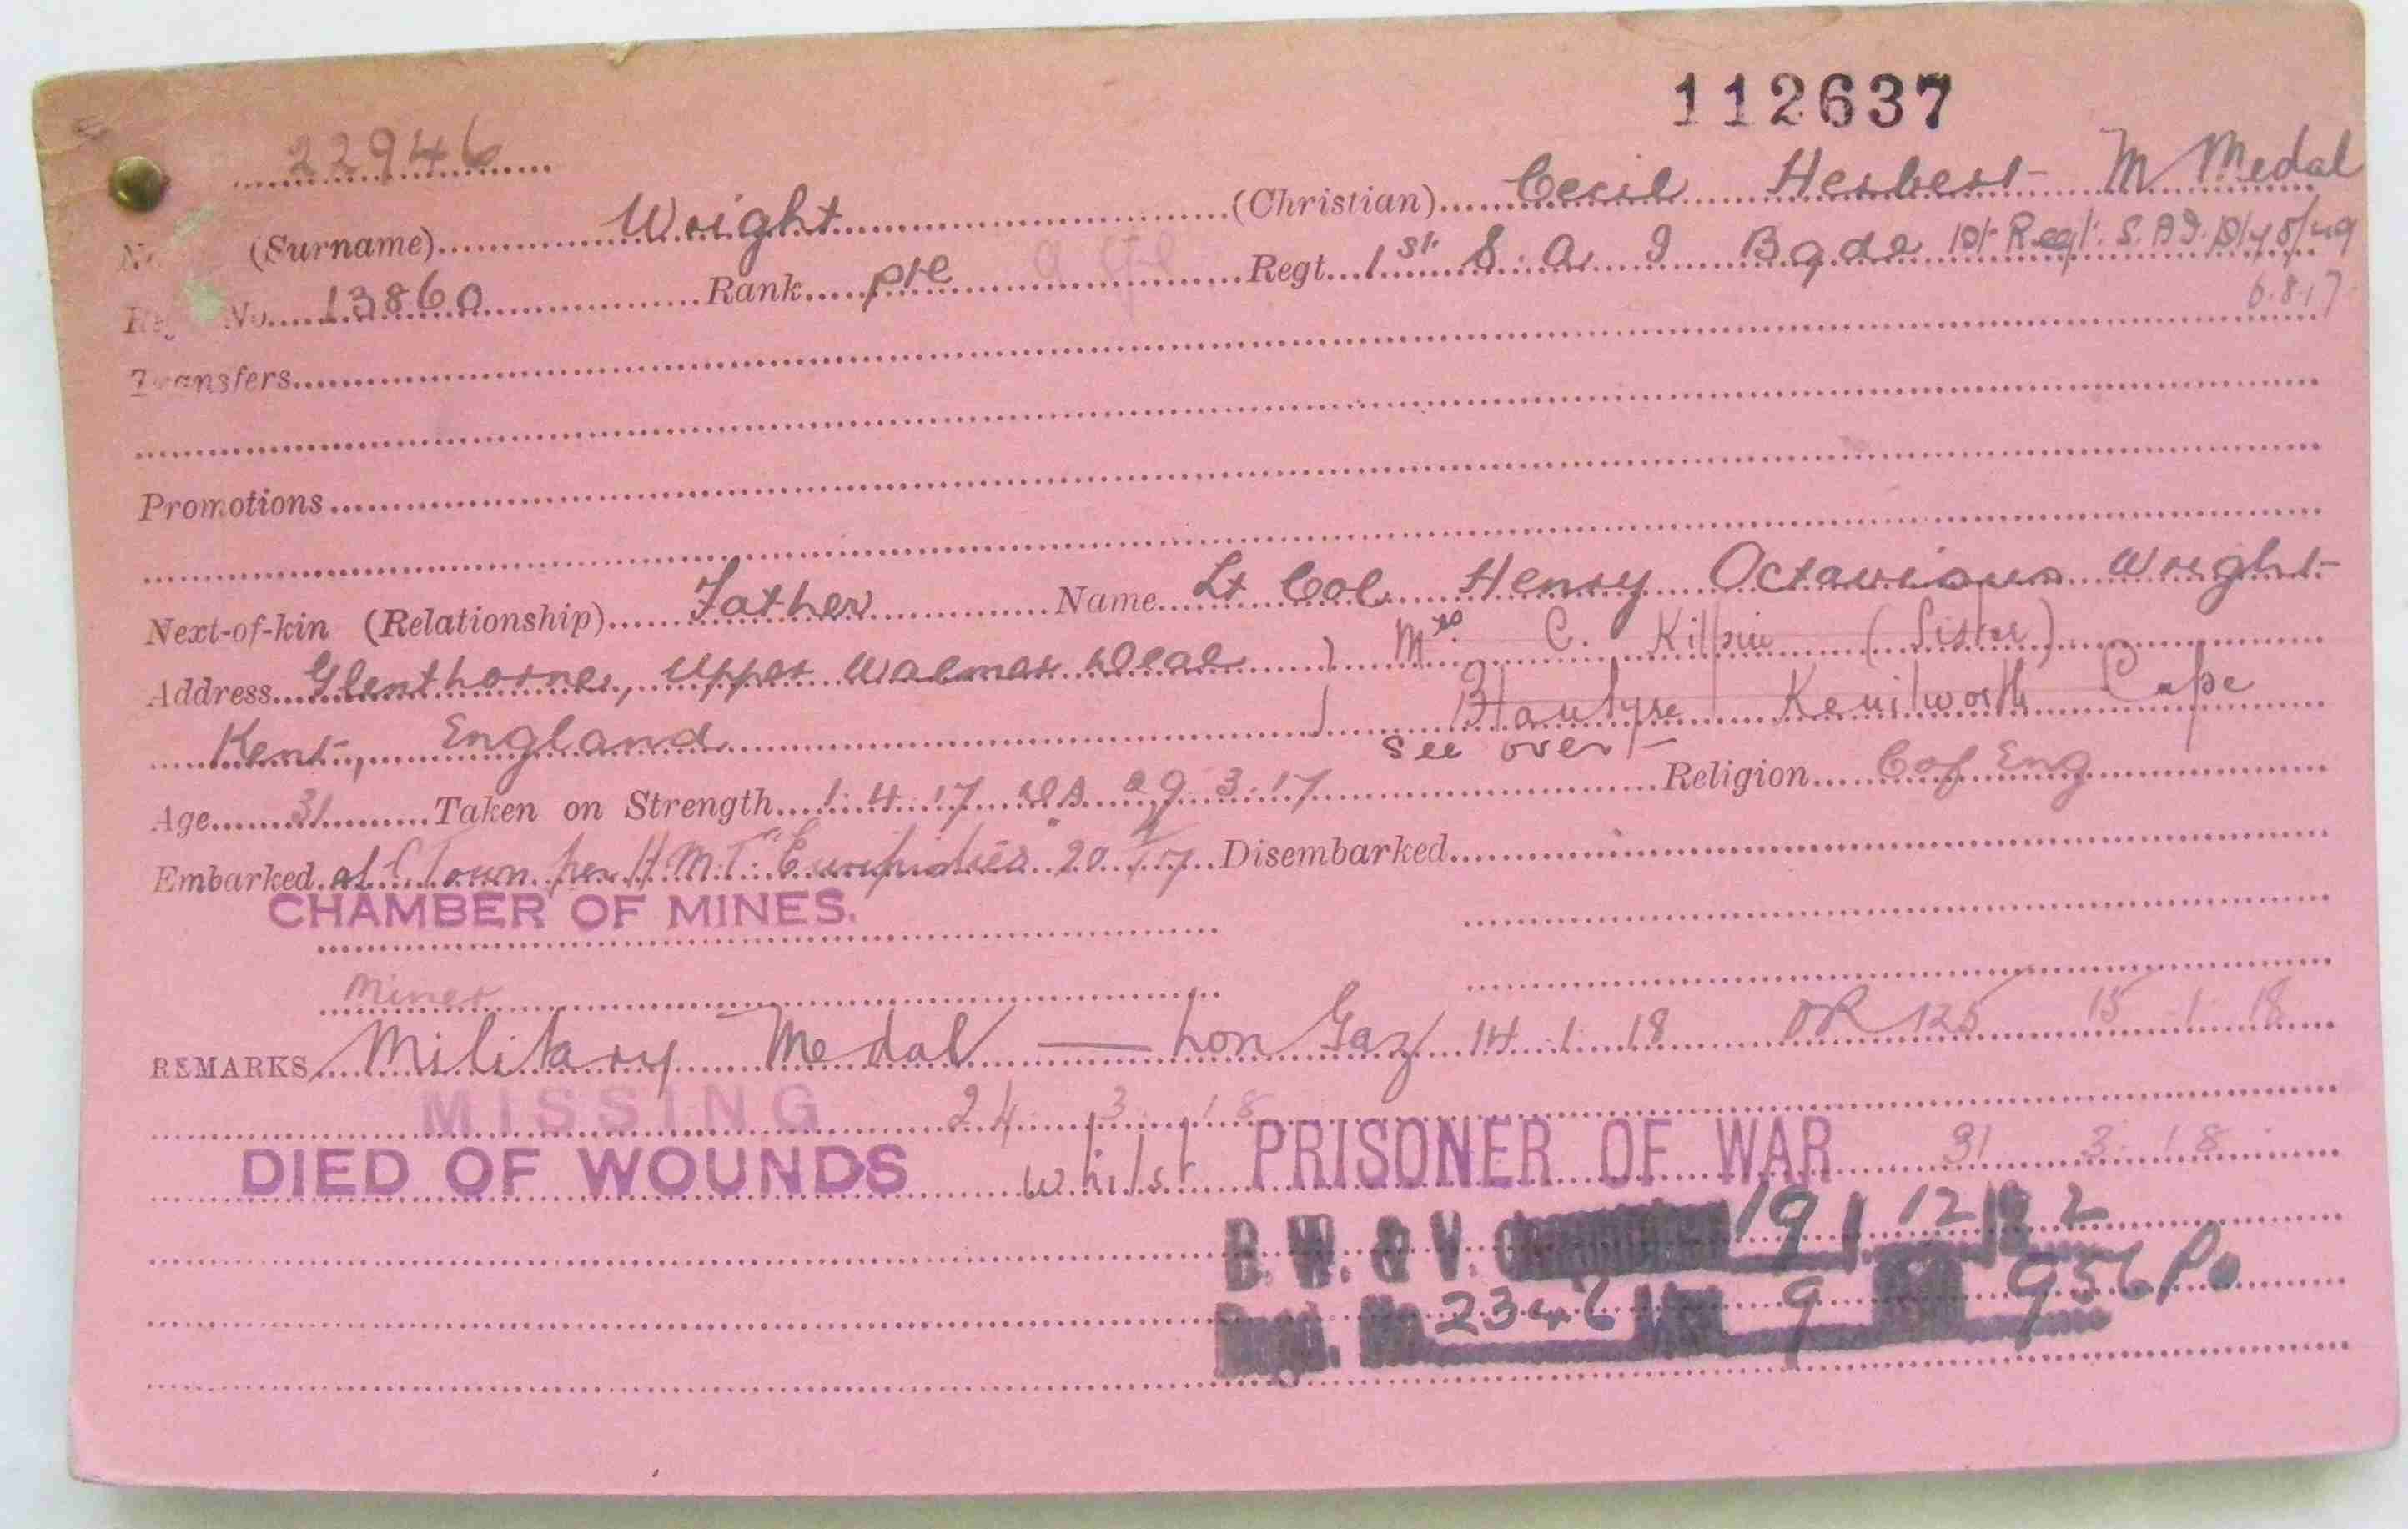 112637
22946
(Surname) Wright (Christian) Cecil Herbert M Medal
No. 13860 Rank pte Regt. 1st S. A. I Bgde 1st Regt. S.A.I.
6.8.17
Transfers
Promotions
Next-of-kin (Relationship) Father Name Lt Col Henry Octavious Wright
Address Glenthorne, Upper Walmer Deal Mrs. C. Killpin (Sister)
Kent, England Blantyre Kenilworth Cape
see over
Age 31 Taken on Strength 1.4.17 29.3.17 Religion C of Eng
Embarked at C Town per H.M.T. "Euripides 20 Disembarked
CHAMBER OF MINES.
Miner
REMARKS Military Medal — Lon Gaz 14.1.18 OR 125 15 1 18
MISSING 24.3.18
DIED OF WOUNDS whilst PRISONER OF WAR 31 3.18
B. W. & V. 19 12
Regd. No 2346 9 956 Po